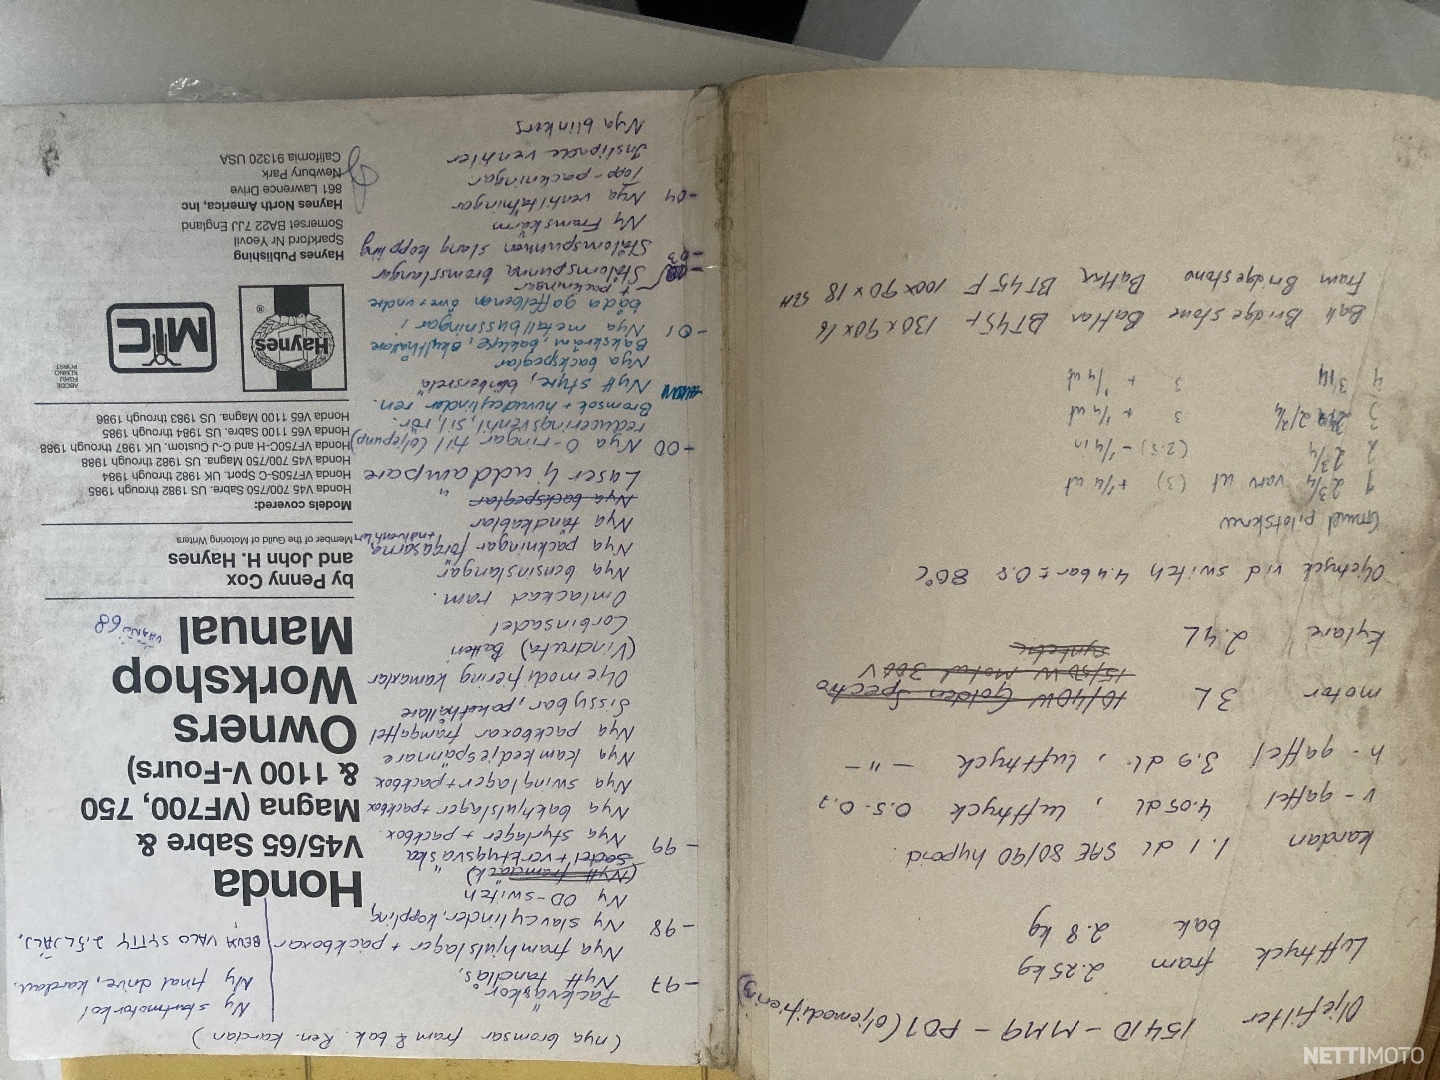 Oljefilter 15410-MM9-P01 (oljemodifiering)
Lufttryck fram 2.25 kg
bak 2.8 kg
kardan 1.1 dl SAE 80/90 hypoid.
v-gaffel 4.05 dl, lufttryck 0.5-0.7
h-gaffel 3.9 dl, lufttryck -"-
motor 3L 10/40W Golden Spectro
15/50W Motul 300V
syntetic
kylare 2.4L
Oljetryck vid switch 4.4 bar ± 0.5 80°C
Grund pilotskruv
1 2 3/4 varv ut (3) + 1/4 ut
2 2 3/4 (2.5) - 1/4 in
3 2 3/4 3 + 1/4 ut
4 3 1/4 3 + 1/4 ut
Bak Bridgestone Battlax BT45 130x90x16
Fram Bridgestone Battlax BT45 F 100x90x18 56H
(nya bromsar fram & bak. Ren. kardan)
Packväskor
-97 Nytt tändlås,
Nya framhjulslager + packboxar
-98 Ny slavcylinder, koppling
Ny OD-switch
(Nytt framdäck)
Sadel + verktygsväska
-99 Nya styrlager + packbox.
Nya bakhjulslager + packbox
Nya swinglager + packbox
Nya kamkedjespännare
Nya packboxar framgaffel
Sissybar, pakethållare
Olje modifiering kamaxlar
(Vindruta) Batteri
Corbinsadel
Omlackad ram.
Nya bensinslangar
Nya packningar förgasarna
Nya tändkablar
Nya backspeglar
Laser 4 ljuddämpare
-00 Nya O-ringar till (oljepump)
reduceringsventil, sil, rör.
Bromsok + huvudcylinder ren.
Nytt styre,
Nya backspeglar
Bakskärm, baklyse, skylthållare
-01 Nya metallbussningar i
båda gaffelbenen över + undre
+ packningar
Stålomspunna bromsslangar
-03 Stålomspunnen slang koppling
Ny Framskärm
-04 Nya ventiltätningar
Topp-packningar
Inslipade ventiler
Nya blinkers
Ny startmotorkol
Ny final drive, kardan.
VALO SYTTY 2.5L JÄLJ.
Honda
V45/65 Sabre &
Magna (VF700, 750
& 1100 V-Fours)
Owners
Workshop
Manual
68
by Penny Cox
and John H. Haynes
Member of the Guild of Motoring Writers
Models covered:
Honda V45 700/750 Sabre. US 1982 through 1985
Honda VF750S-C Sport. UK 1982 through 1984
Honda V45 700/750 Magna. US 1982 through 1988
Honda VF750C-H and C-J Custom. UK 1987 through 1988
Honda V65 1100 Sabre. US 1984 through 1985
Honda V65 1100 Magna. US 1983 through 1986
ABCDE
FGHIJ
KLMNO
PQRST
Haynes
MIC
Haynes Publishing
Sparkford Nr Yeovil
Somerset BA22 7JJ England
Haynes North America, Inc
861 Lawrence Drive
Newbury Park
California 91320 USA
NETTIMOTO